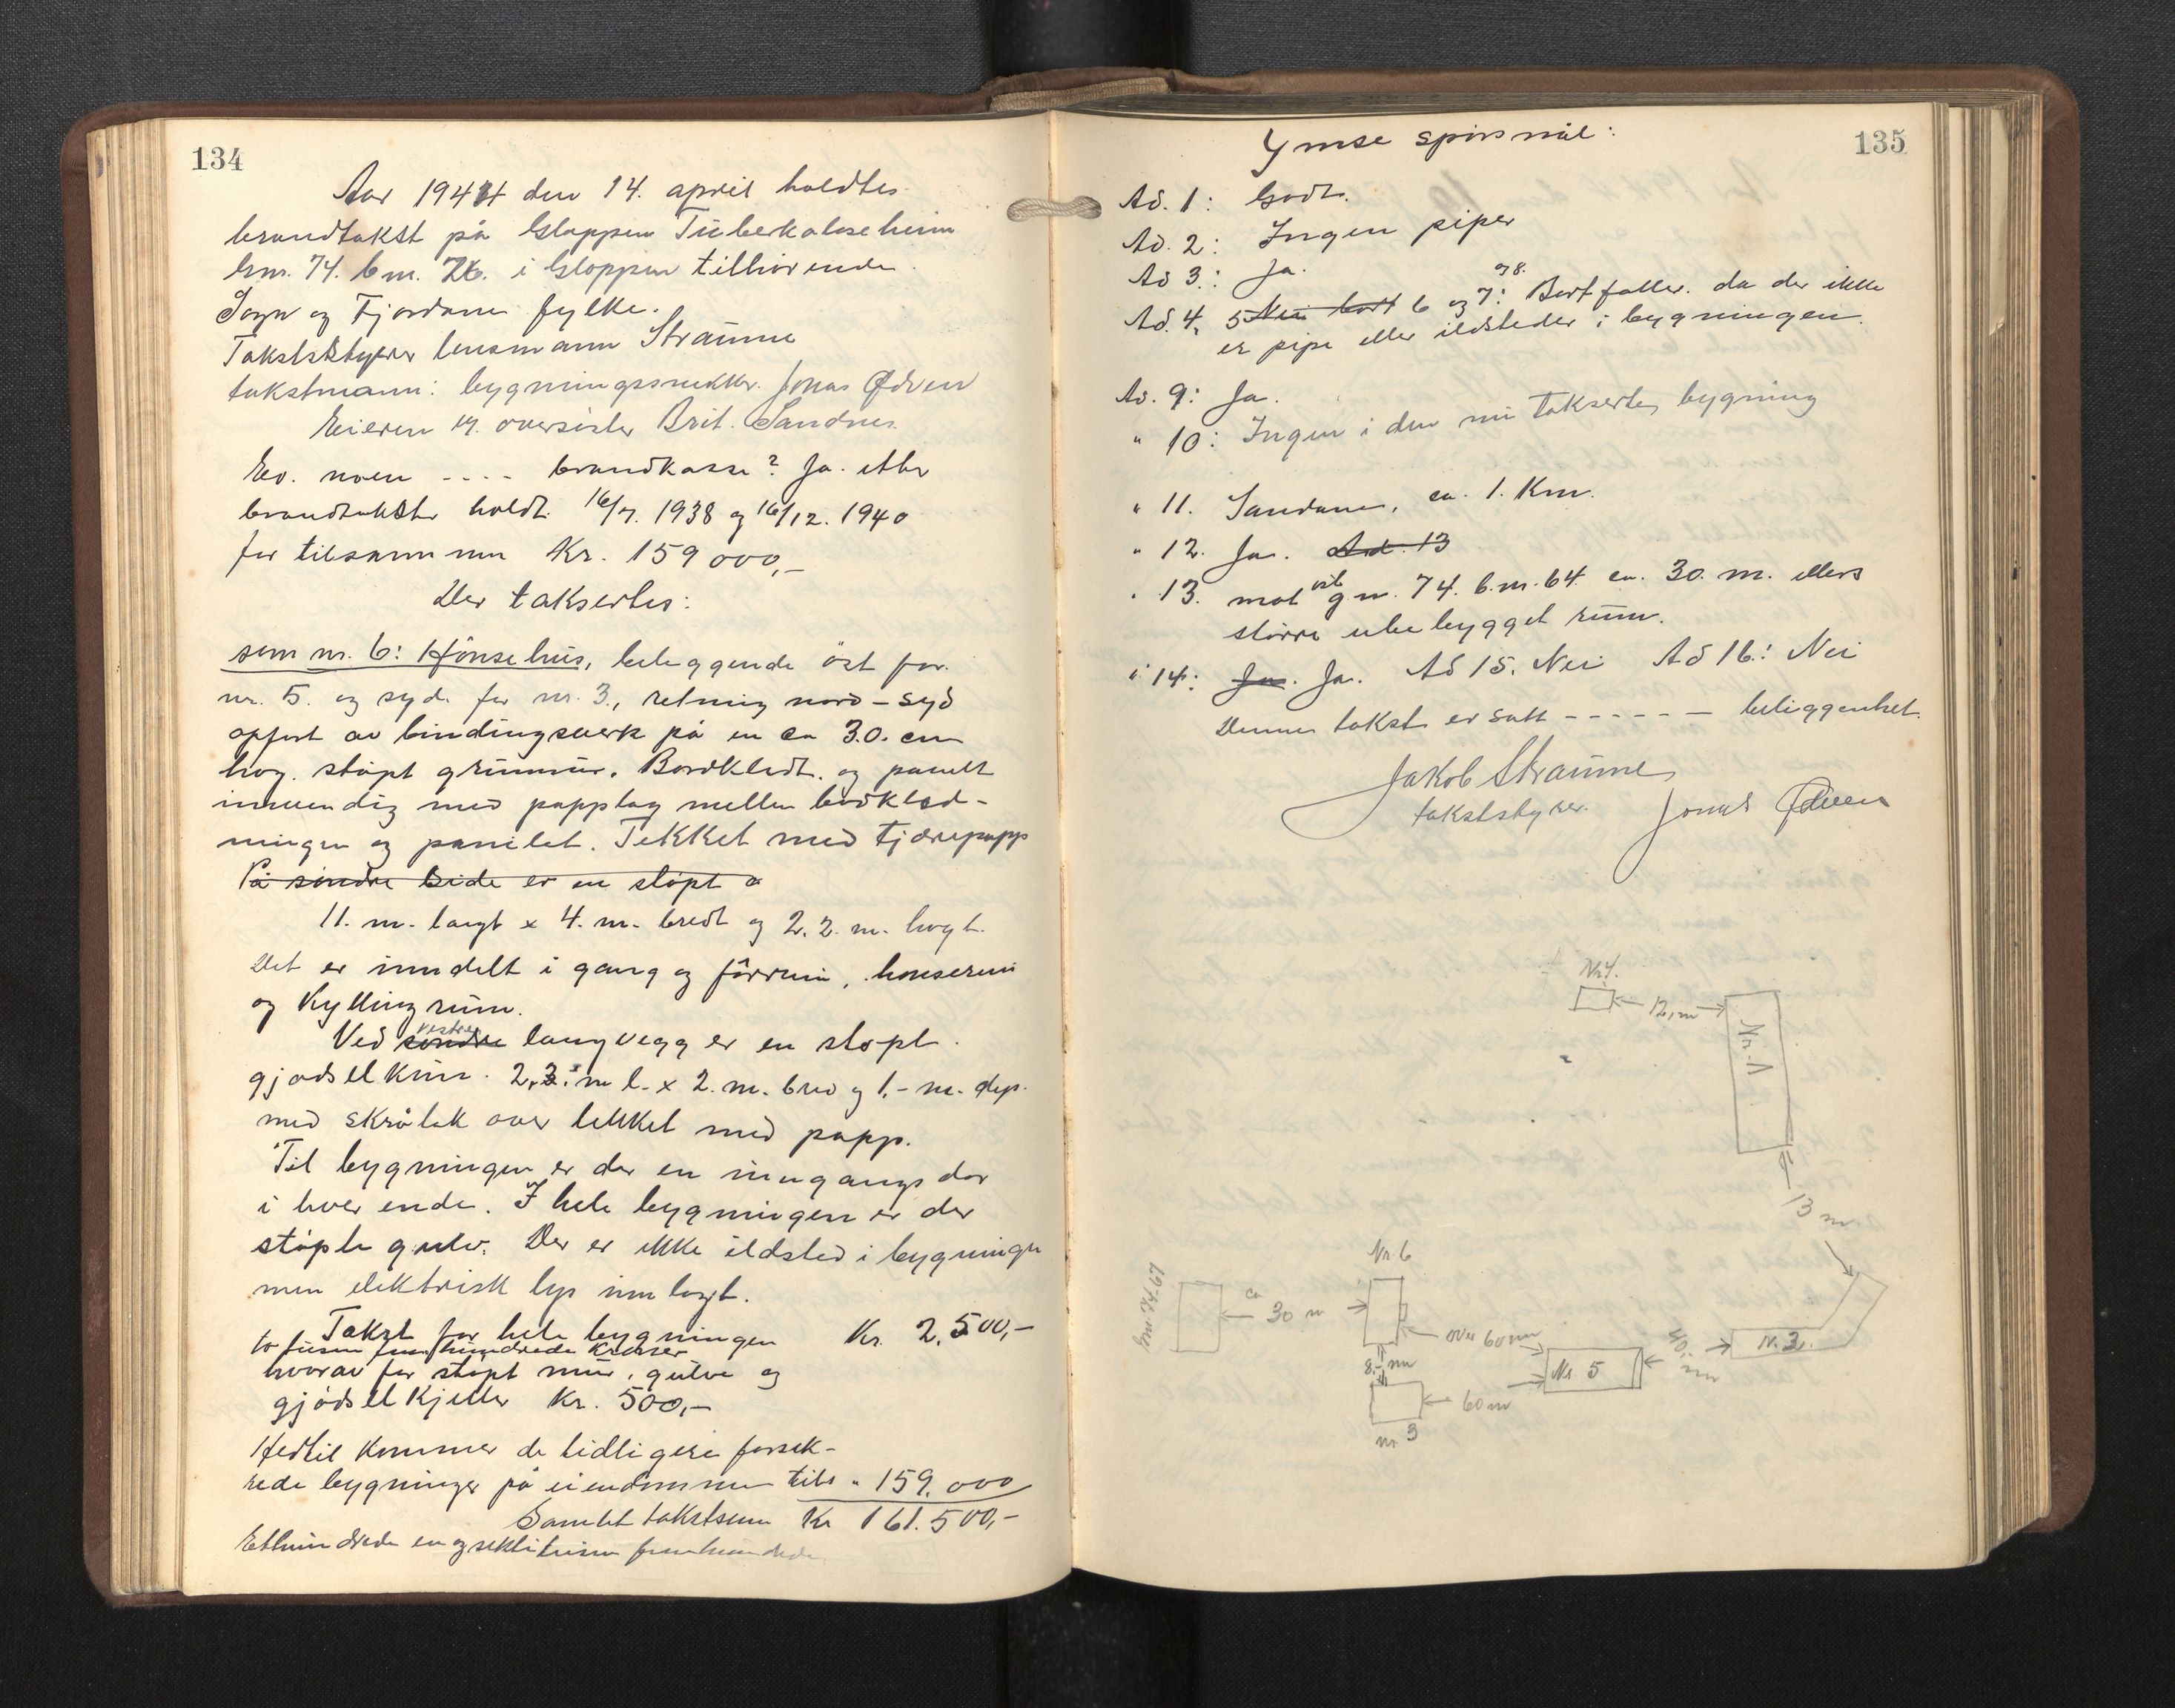 134
Aar 1944 den 14. april holdtes
brandtakst på Gloppen Tuberkuloseheim
Gnr. 74. bnr. 26. i Gloppen tilhörende
Sogn og Fjordane fylke.
Takstbstyrer lensmann Straume
takstmann: bygningssnekker Jonas Ødven
Eieren v. oversöster Brit. Sandnes
Ev. noen ---- brandkasse? Ja. etter
brandtakster holdt 16/7. 1938 og 16/12. 1940
for tilsammen Kr. 159 000,-
Der taksertes:
som nr. 6: Hönsehus, beleggende öst for
nr. 5. og syd. for nr. 3., retning nord - syd
opfört av bindingsverk på en ca 30. cm
höy. stöpt grunmur. Bordkledt. og panelt
innvendig med papplag mellen bordkled-
ningen og panelet. Tekket med tjærepapp
På söndre side er en stöpt a
11. m. langt x 4. m. bredt og 2.2. m. höyt.
Det er inndelt i gang og fôrrum, hönserum
og Kyllingrum.
Ved söndre vestre langvegg er en stöpt
gjödselkum. 2,3. m l. x 2. m. bred og 1.- m. dyp.
med skråtak over tekket med papp.
Til bygningen er der en inngangs dör
i hver ende. I hele bygningen er der
stöpte gulv. Der er ikke ildsted i bygningen
men elektrisk lys innlagt.
Takst for hele bygningen Kr. 2.500,-
to tusen fem hundrede Kroner
hvorav for stöpt mur, gulve og
gjödselkjeller Kr. 500,-
Hertil kommer de tidligere forsik-
rede bygninger på eiendommen tils " 159.000
Samlet takstsum Kr 161.500,-
Etthundrede en og sekstitusen femhundrede
135
Ymse spörsmål:
Ad. 1: Godt.
Ad. 2: Ingen piper
Ad 3.: Ja.
Ad. 4, 5 Nei bort 6 og 7: og 8. Bortfaller. da der ikke
er pipe eller ildsteder i bygningen.
Ad. 9: Ja.
" 10: Ingen i den nu takserte, bygning
" 11. Sandane, ca. 1. Km.
" 12. Ja. Ad. 13
" 13. mot gnr. 74. b.nr. 64. ca. 30. m. ellers
större ubebygget rum.
" 14: Ja. Ja. Ad 15. Nei Ad 16.: Nei
Denne takst er satt ------ beliggenhet.
Jakob Straume
takstbstyrer. Jonas Ødven
Nr 4.
12,m
Nr. 1
13 m
Nr 6
Gnr 74.67
ca
30 m
over 60 m
40,- m
Nr. 2.
8,- m
Nr 5
60 m
nr. 3